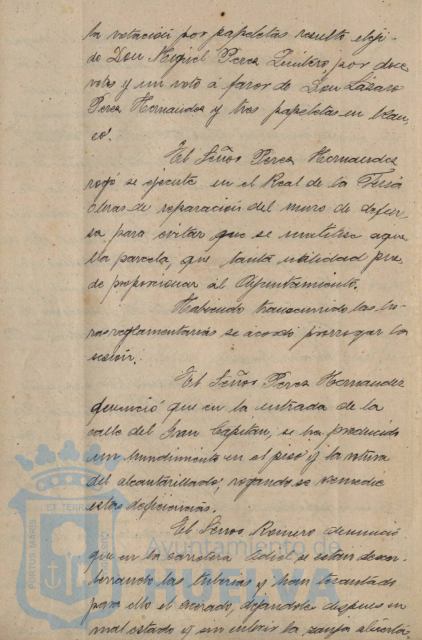 la votación por papeletas resultó elegi-
do Don Miguel Perez Quintero por doce
votos y un voto á favor de Don Lázaro
Perez Hernandez y tres papeletas en blan-
co.
El Señor Perez Hernandez
rogó se ejecute en el Real de la Feria
obras de reparación del muro de defen-
sa para evitar que se inutilise aque
lla parcela, que tanta utilidad pue-
de proporcionar al Ayuntamiento.
Habiendo transcurrido las ho-
ras reglamentarias se acordó prorrogar la
sesión.
El Señor Perez Hernandez
denunció que en la entrada de la
calle del Gran Capitan, se ha producido
un hundimiento en el piso y la rotura
del alcantarillado, rogando se remedie
estas deficiencias.
El Señor Romero denunció
que en la carretera Odiel se están
las tuberias y han levantado
para ello el acerado, dejandolo despues en
mal estado y sin cubrir la zanja abierta,
Ayuntamiento de
HUELVA
PORTUS MARIS ET TERRAE CUSTODIA